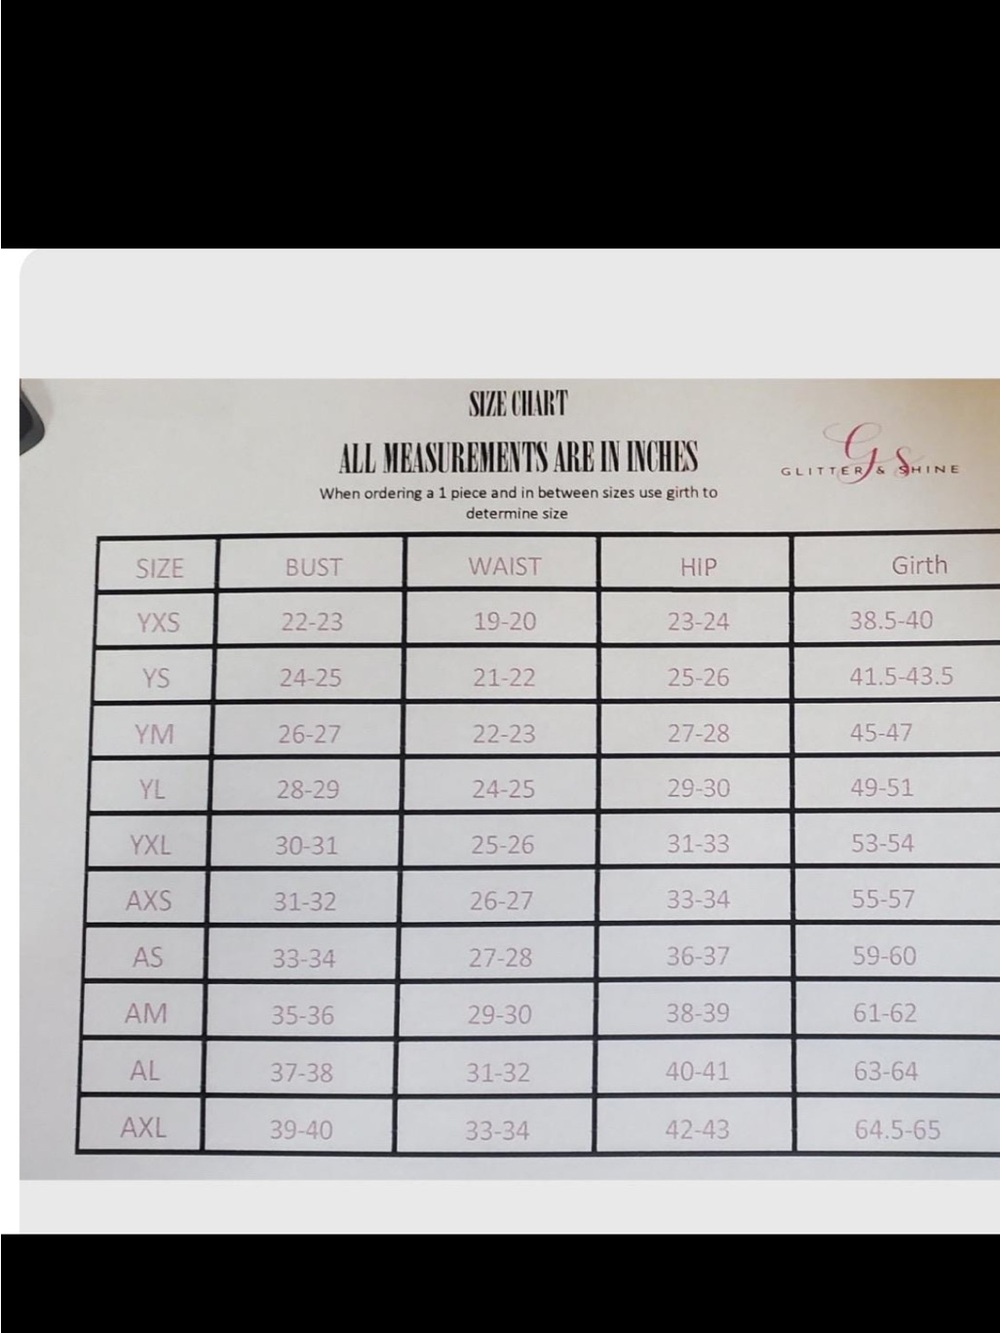 SIZE CHART
ALL MEASUREMENTS ARE IN INCHES
When ordering a 1 piece and in between sizes use girth to
determine size
GS
GLITTER & SHINE
SIZE BUST WAIST HIP Girth
YXS 22-23 19-20 23-24 38.5-40
YS 24-25 21-22 25-26 41.5-43.5
YM 26-27 22-23 27-28 45-47
YL 28-29 24-25 29-30 49-51
YXL 30-31 25-26 31-33 53-54
AXS 31-32 26-27 33-34 55-57
AS 33-34 27-28 36-37 59-60
AM 35-36 29-30 38-39 61-62
AL 37-38 31-32 40-41 63-64
AXL 39-40 33-34 42-43 64.5-65